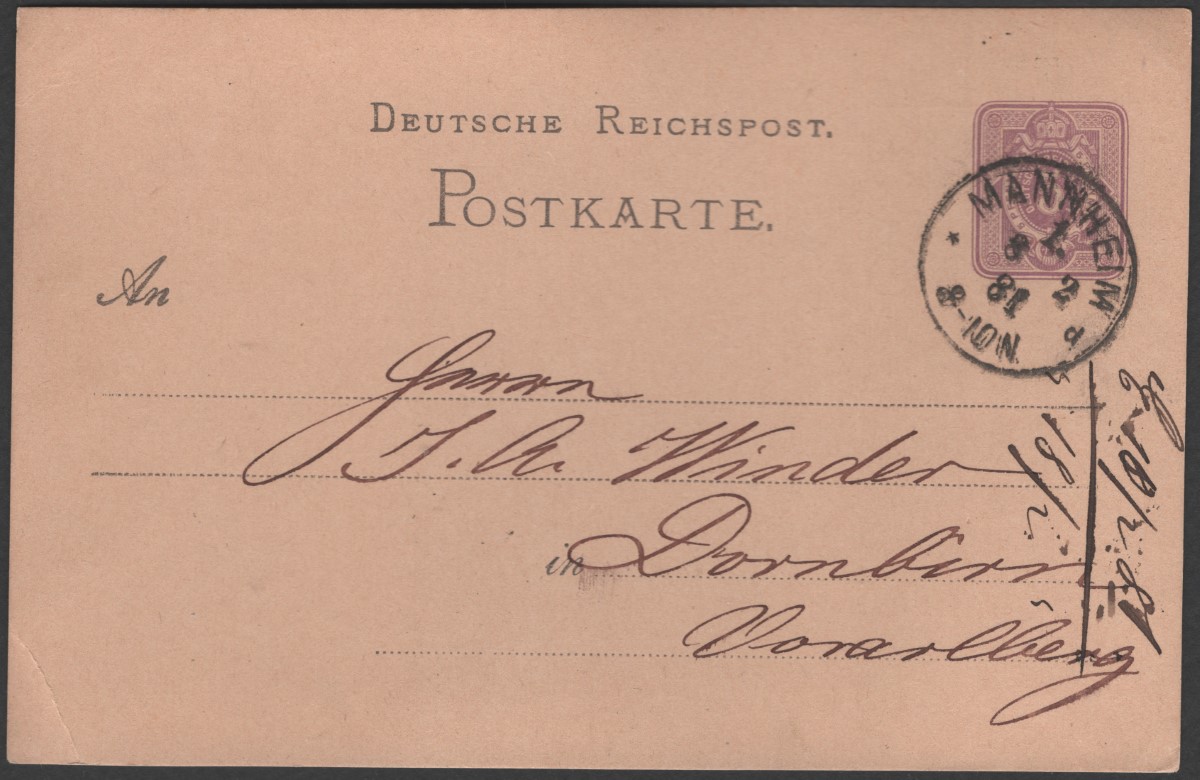 DEUTSCHE REICHSPOST.
POSTKARTE.
MANNHEIM
1.
8 2
81
8-10N
An
Herrn
J. A. Winder
in Dornbirn
Vorarlberg